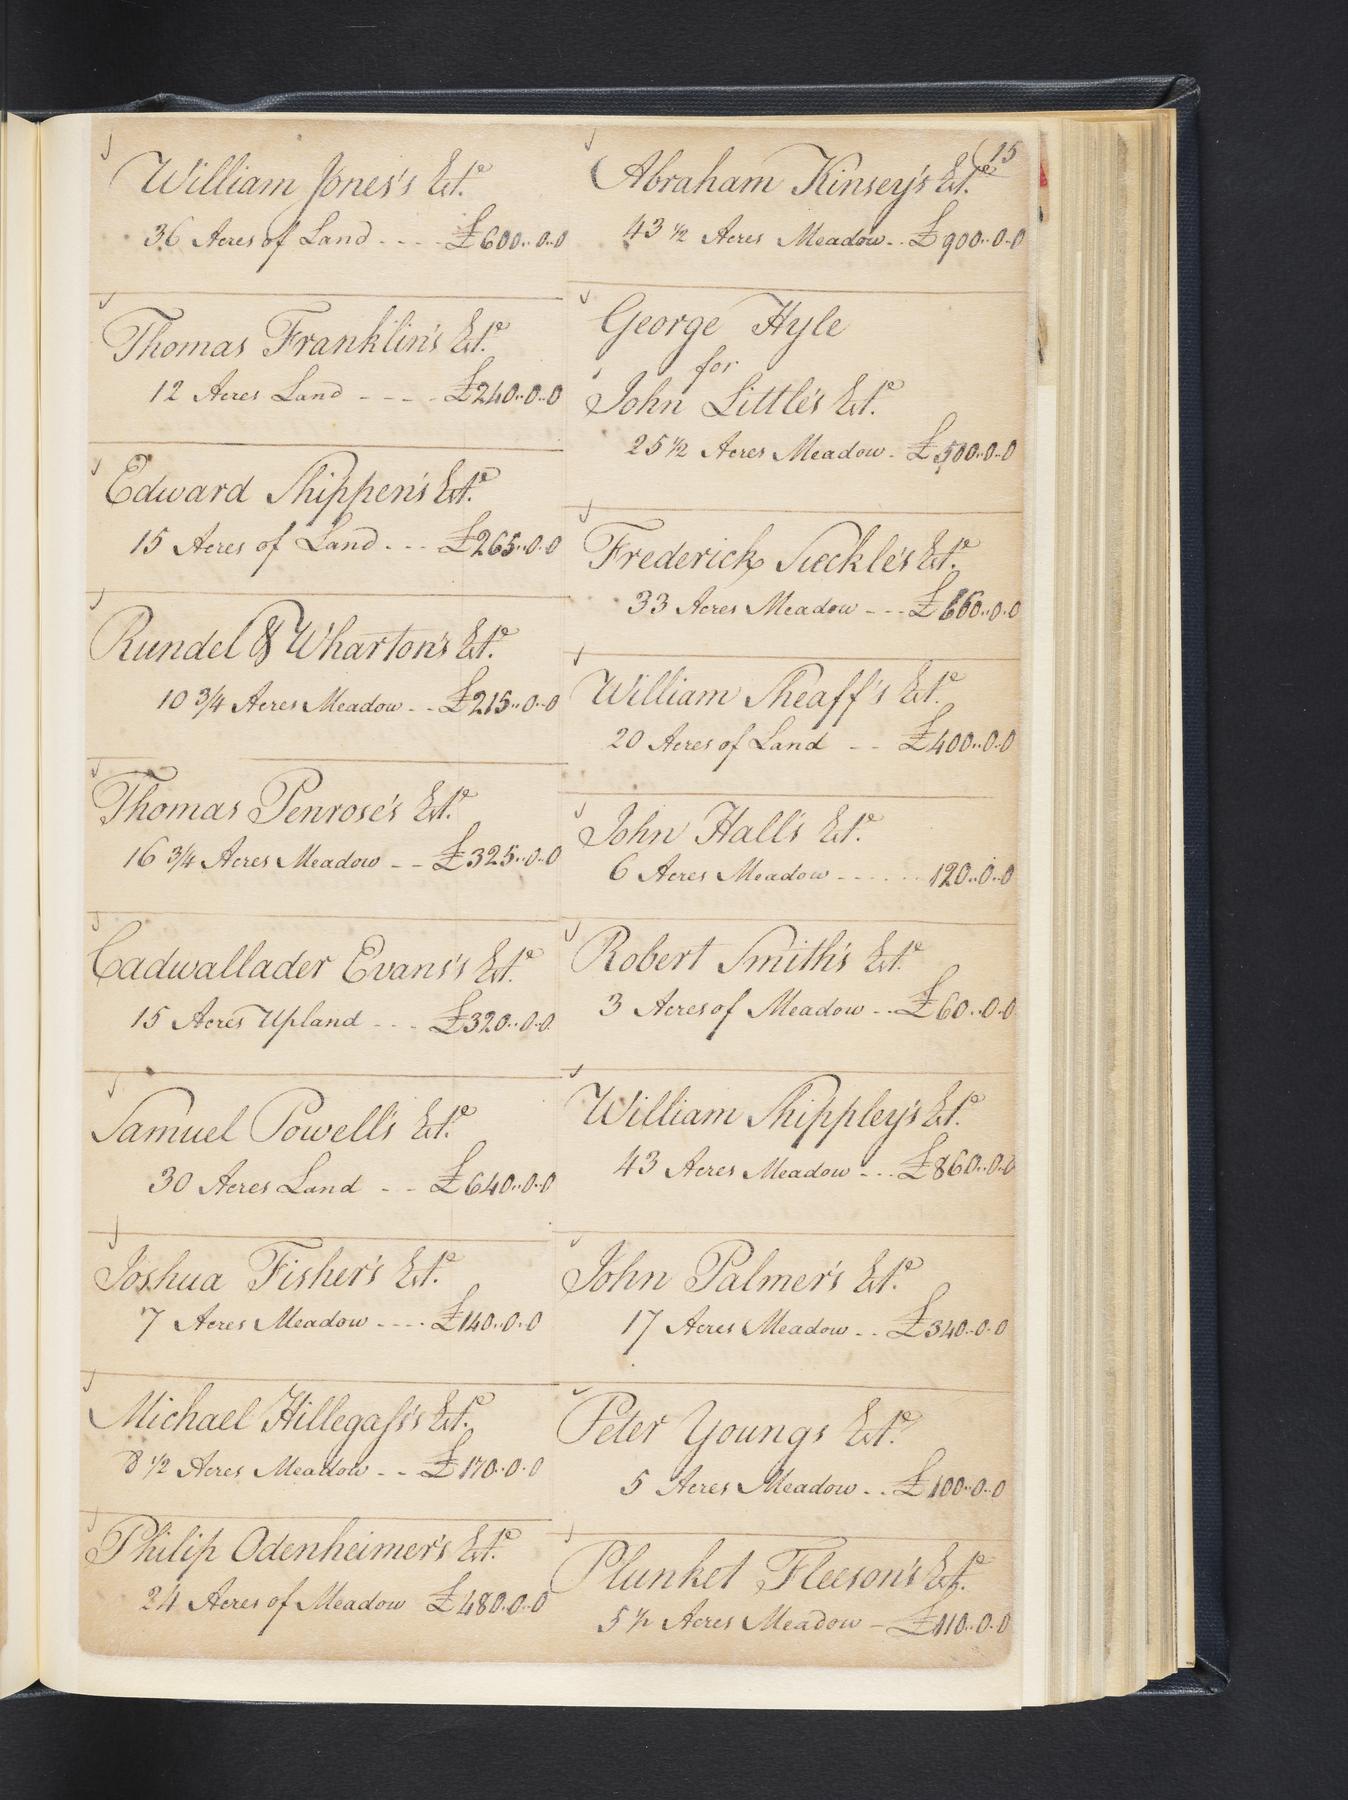 William Jones's Est.e
36 Acres of Land - - - - £600..0..0
Thomas Franklin's Est.e
12 Acres Land - - - - £240..0..0
Edward Shippen's Est.e
15 Acres of Land - - - £265..0..0
Rundel & Wharton's Est.e
10 3/4 Acres Meadow - - £215..0..0
Thomas Penrose's Est.e
16 3/4 Acres Meadow - - £325..0..0
Cadwallader Evans's Est.e
15 Acres Upland - - - £320..0..0
Samuel Powell's Est.e
30 Acres Land - - £640..0..0
Joshua Fisher's Est.e
7 Acres Meadow - - - - £140..0..0
Michael Hillegass's Est.e
8 1/2 Acres Meadow - - £170..0..0
Philip Odenheimer's Est.e
24 Acres of Meadow £480..0..0
(15
Abraham Kinsey's Est.e
43 1/2 Acres Meadow - - £900..0..0
George Hyle
for
John Little's Est.e
25 1/2 Acres Meadow - £500..0..0
Frederick Seckle's Est.e
33 Acres Meadow - - - £660..0..0
William Sheaff's Est.e
20 Acres of Land - - £400..0..0
John Hall's Est.e
6 Acres Meadow - - - - - - 120..0..0
Robert Smith's Est.e
3 Acres of Meadow - - £60..0..0
William Shippley's Est.e
43 Acres Meadow - - - £860..0..0
John Palmer's Est.e
17 Acres Meadow - - £340..0..0
Peter Youngs Est.e
5 Acres Meadow - - £100..0..0
Plunket Fleeson's Est.e
5 1/2 Acres Meadow - £110..0..0